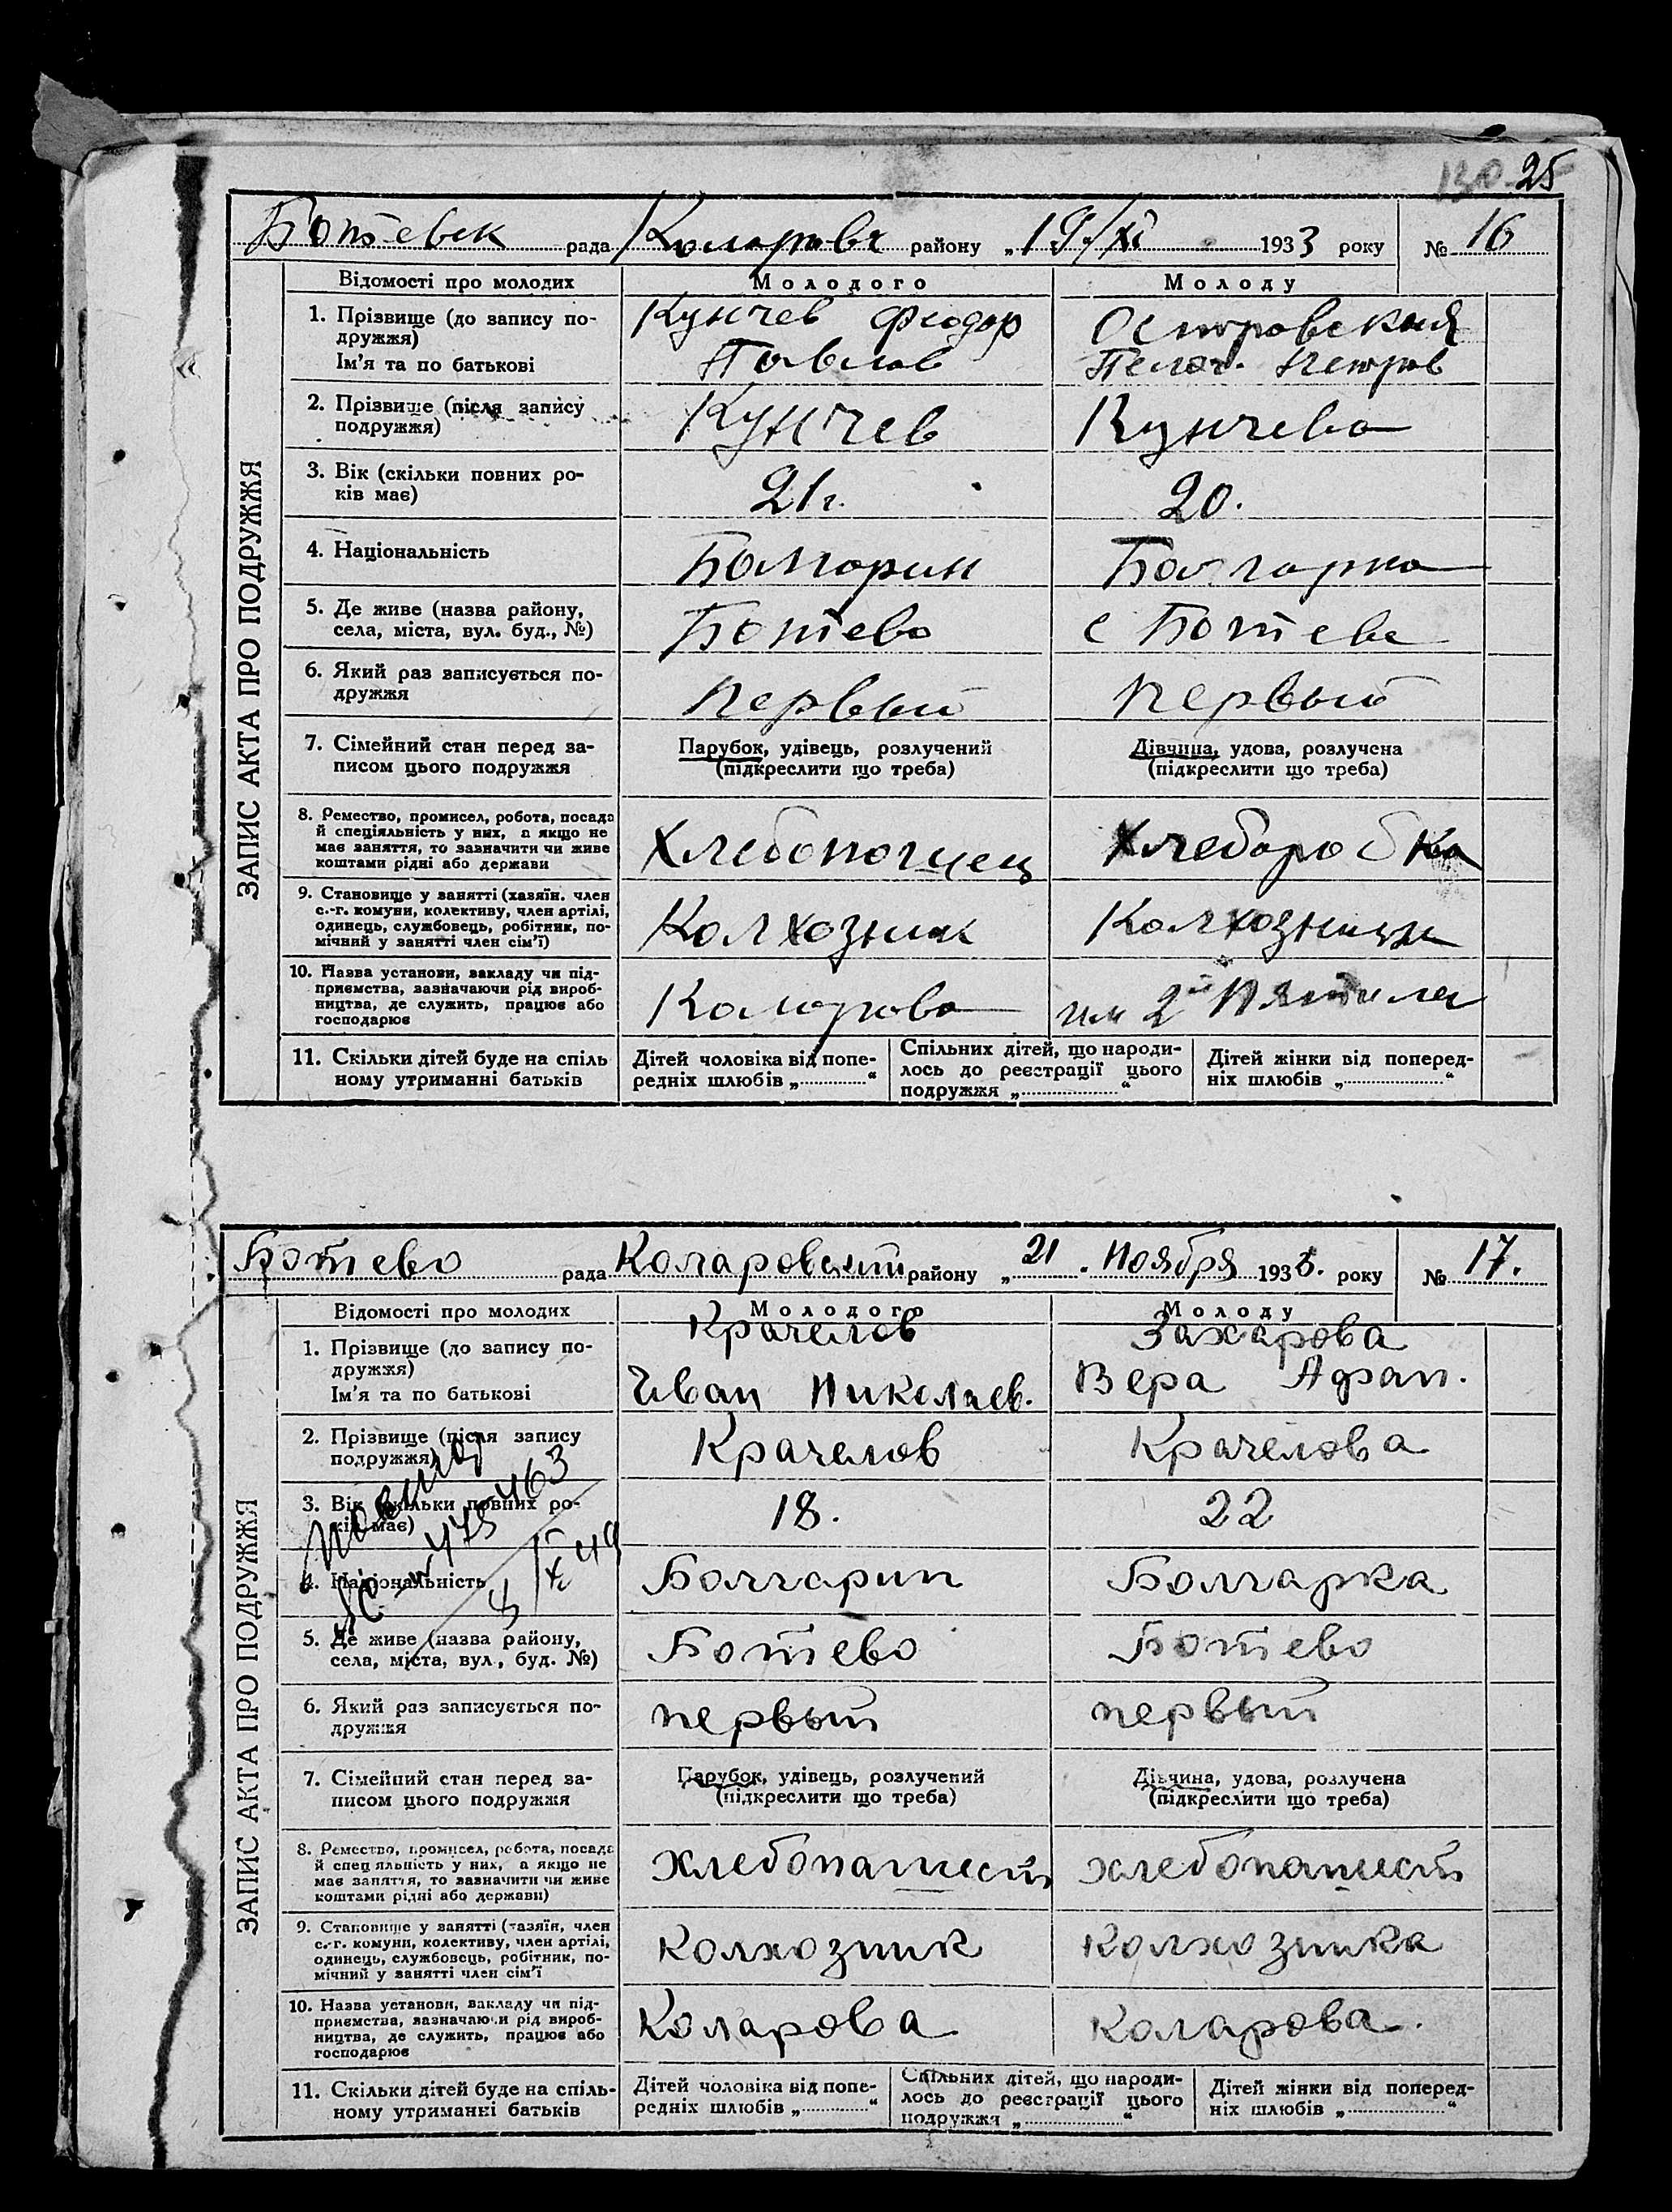 25
Ботевск рада Коларовск району „19/XI 1933 року № 16
ЗАПИС АКТА ПРО ПОДРУЖЖЯ
Відомості про молодих Молодого Молоду
1. Прізвище (до запису по-
дружжя)
Ім'я та по батькові
Кунчев Феодор
Павлов
Островская
Пелаг. Петров
2. Прізвище (після запису
подружжя)
Кунчев Кунчева
3. Вік (скільки повних ро-
ків має)
21 г. 20.
4. Національність Болгарин Болгарка
5. Де живе (назва району,
села, міста, вул. буд., №)
Ботево с Ботеве
6. Який раз записується по-
дружжя
Первый первый
7. Сімейний стан перед за-
писом цього подружжя
Парубок, удівець, розлучений
(підкреслити що треба)
Дівчина, удова, розлучена
(підкреслити що треба)
8. Ремество, промисел, робота, посада
й спеціяльність у них, а якщо не
має заняття, то зазначити чи живе
коштами рідні або держави
Хлебопашец Хлеборобка
9. Становище у занятті (хазяїн. член
с.-г. комуни, колективу, член артілі,
одинець, службовець, робітник, по-
мічний у занятті член сім'ї)
Колхозник Колхозници
10. Назва установи, закладу чи під-
приємства, зазначаючи рід вироб-
ництва, де служить, працює або
господарює
Коларова им 2й Пятилет
11. Скільки дітей буде на спіль
ному утриманні батьків
Дітей чоловіка від попе-
редніх шлюбів „ “
Спільних дітей, що народи-
лось до реєстрації цього
подружжя „ “
Дітей жінки від поперед-
ніх шлюбів „ “
Ботево рада Коларовский району „21. Ноября 1933. року № 17.
ЗАПИС АКТА ПРО ПОДРУЖЖЯ
Відомості про молодих Молодого Молоду
1. Прізвище (до запису по-
дружжя)
Ім'я та по батькові
Крачелов
Иван Николаев.
Захарова
Вера Афан.
2. Прізвище (після запису
подружжя)
Крачелов Крачелова
3. Вік (скільки повних ро-
ків має)
18. 22
4. Національність Болгарин Болгарка
5. Де живе (назва району,
села, міста, вул., буд. №)
Ботево Ботево
6. Який раз записується по-
дружжя
первый первый
7. Сімейний стан перед за-
писом цього подружжя
Парубок, удівець, розлучений
(підкреслити що треба)
Дівчина, удова, розлучена
(підкреслити що треба)
8. Ремество, промисел, робота, посада
й спеціяльність у них, а якщо не
має заняття, то зазначити чи живе
коштами рідні або держави)
хлебопашест хлебопашест
9. Становище у занятті (хазяїн, член
с.-г. комуни, колективу, член артілі,
одинець, службовець, робітник, по-
мічний у занятті член сім'ї
колхозник колхозника
10. Назва установи, закладу чи під-
приємства, зазначаючи рід вироб-
ництва, де служить, працює або
господарює
Коларова Коларова.
11. Скільки дітей буде на спіль-
ному утриманні батьків
Дітей чоловіка від попе-
редніх шлюбів „ “
Спільних дітей, що народи-
лось до реєстрації цього
подружжя „ “
Дітей жінки від поперед-
ніх шлюбів „ “